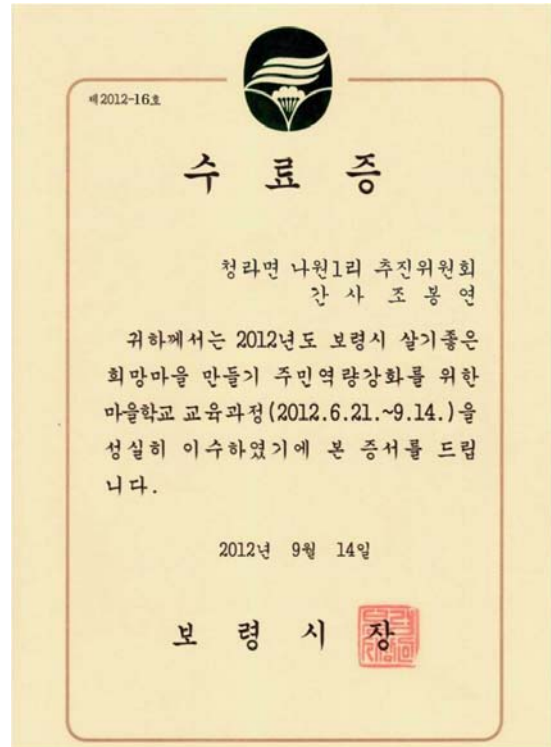 제2012-16호
수 료 증
청라면 나원1리 추진위원회
간 사 조 봉 연
귀하께서는 2012년도 보령시 살기좋은
희망마을 만들기 주민역량강화를 위한
마을학교 교육과정(2012.6.21.~9.14.)을
성실히 이수하였기에 본 증서를 드립
니다.
2012년 9월 14일
보 령 시 장